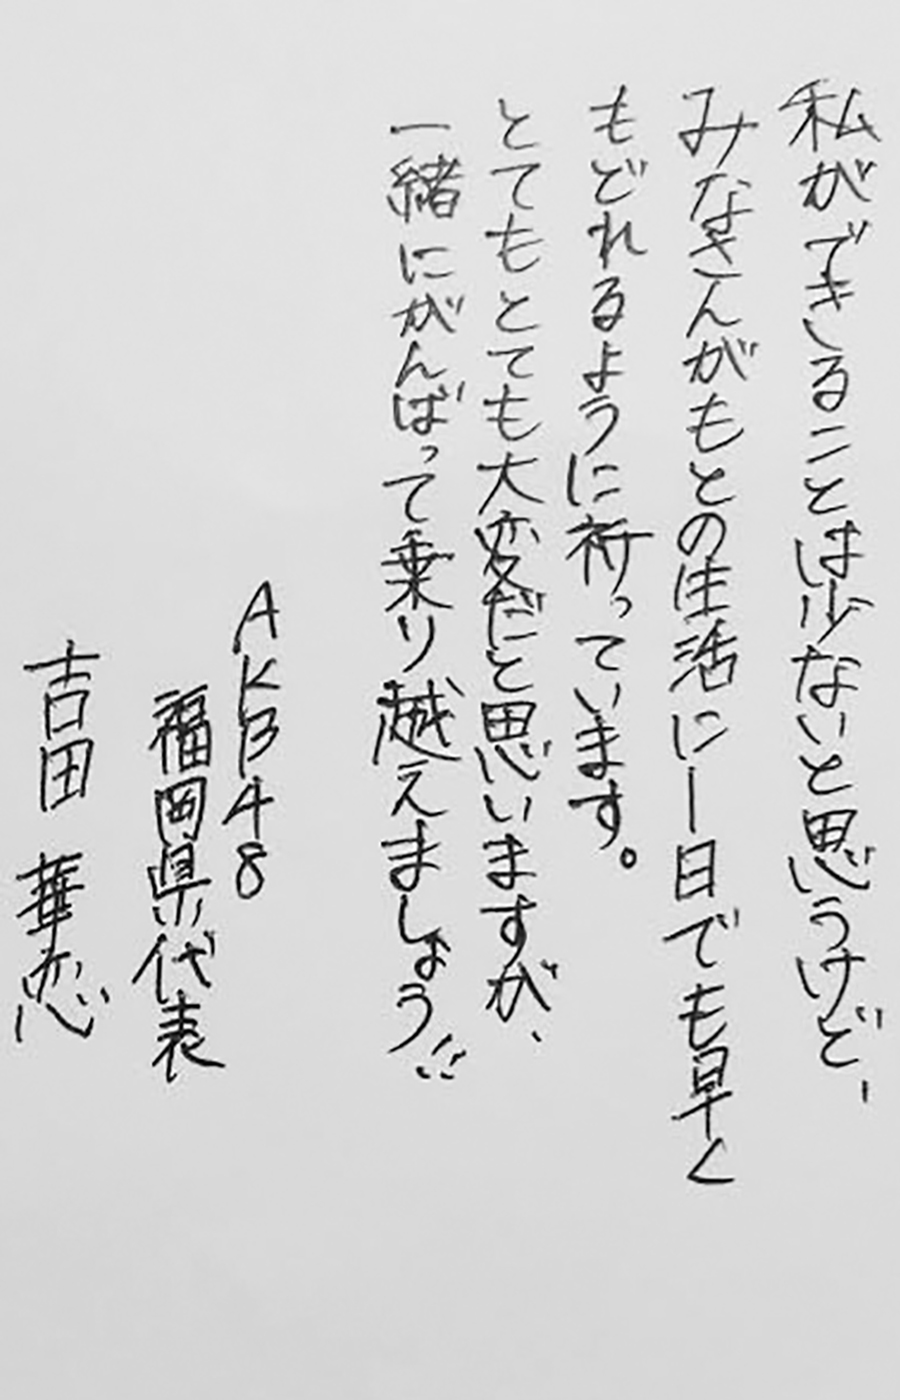 私ができることは少ないと思うけど、
みなさんがもとの生活に一日でも早く
もどれるように祈っています。
とてもとても大変だと思いますが、
一緒にがんばって乗り越えましょう!!
AKB48
福岡県代表
吉田 華恋